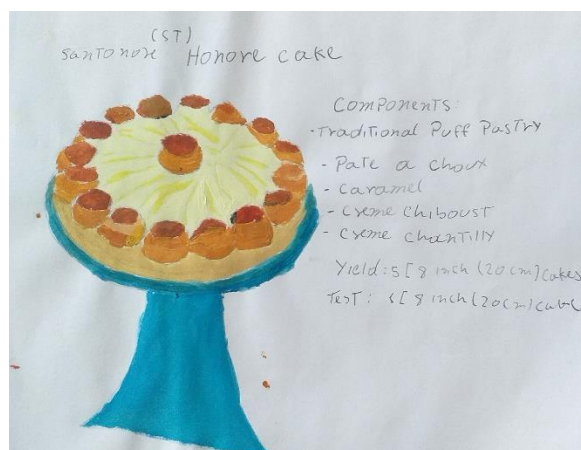 (ST)
Santonore Honore cake
Components:
-Traditional Puff Pastry
- Pate a choux
- Caramel
- Creme Chiboust
- Creme Chantilly
Yield: 5[8 inch (20cm)] cakes
Test: 5[8 inch (20cm)